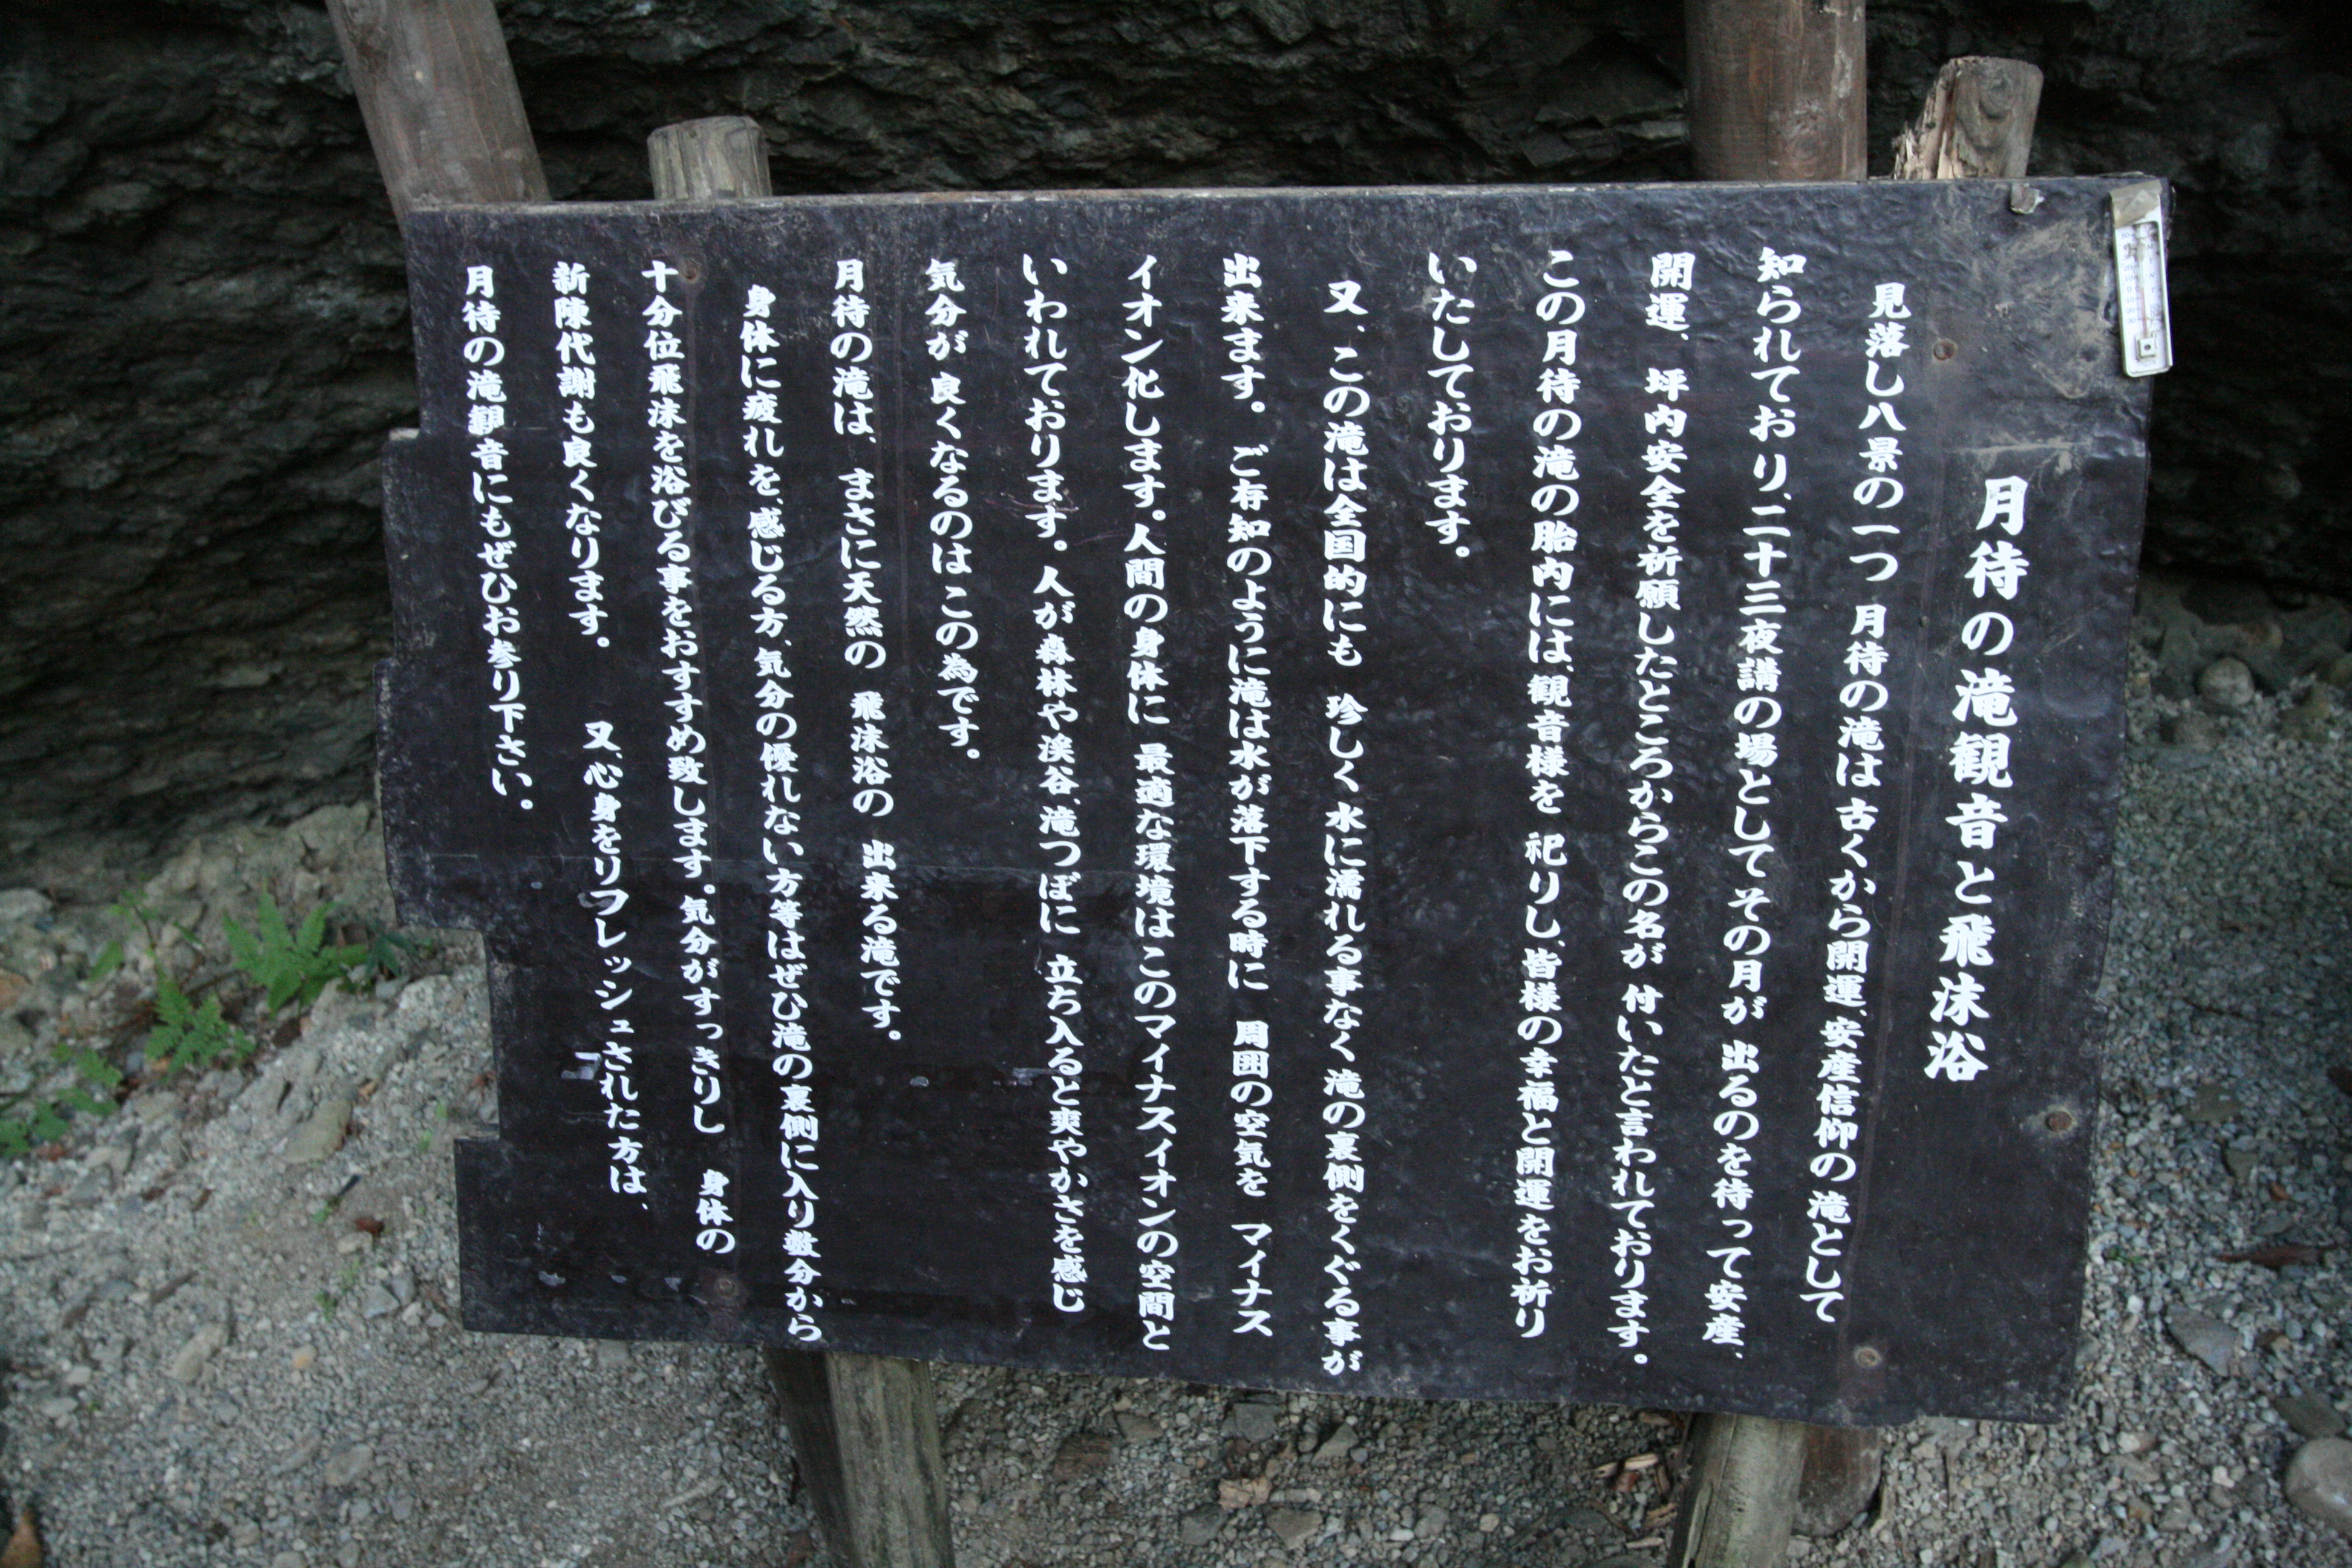 月待の滝観音と飛沫浴
見落し八景の一つ 月待の滝は古くから開運、安産信仰の滝として
知られており、二十三夜講の場としてその月が 出るのを待って安産、
開運、坪内安全を祈願したところからこの名が 付いたと言われております。
この月待の滝の胎内には、観音様を 祀りし、皆様の幸福と開運をお祈り
いたしております。
又、この滝は全国的にも 珍しく水に濡れる事なく滝の裏側をくぐる事が
出来ます。ご存知のように滝は水が落下する時に 周囲の空気を マイナス
イオン化します。人間の身体に 最適な環境はこのマイナスイオンの空間と
いわれております。人が森林や渓谷、滝つぼに 立ち入ると爽やかさを感じ
気分が 良くなるのはこの為です。
月待の滝は、まさに天然の 飛沫浴の 出来る滝です。
身体に疲れを、感じる方、気分の優れない方等はぜひ滝の裏側に入り数分から
十分位飛沫を浴びる事をおすすめ致します。気分がすっきりし 身体の
新陳代謝も良くなります。 又、心身をリフレッシュされた方は、
月待の滝観音にもぜひお参り下さい。